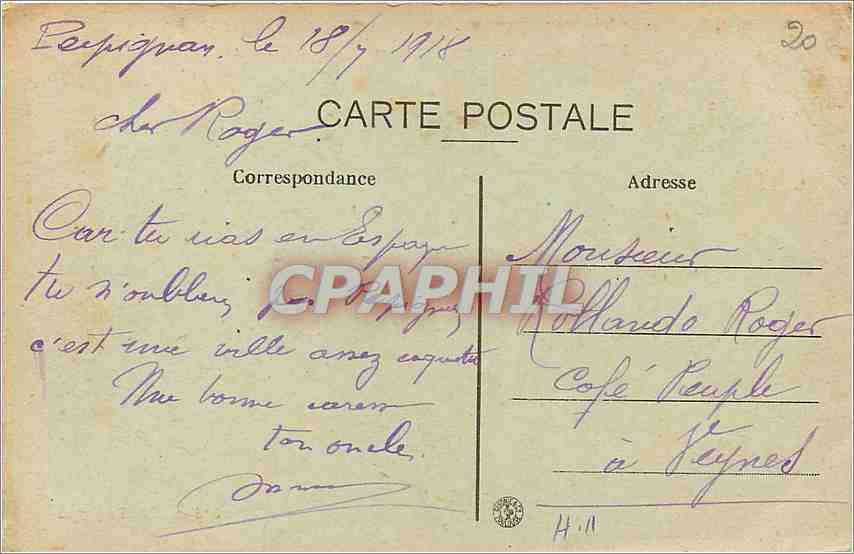 Perpignan, le 18/7 1918
20
cher Roger
CARTE POSTALE
Correspondance
Adresse
Car tu vas en Espagne
tu n'oublierai pas Perpignan
c'est une ville assez coquette
Une bonne caresse
ton oncle
Monsieur
Rollando Roger
Café Peuple
à Veynes
CPAPHIL
H.11